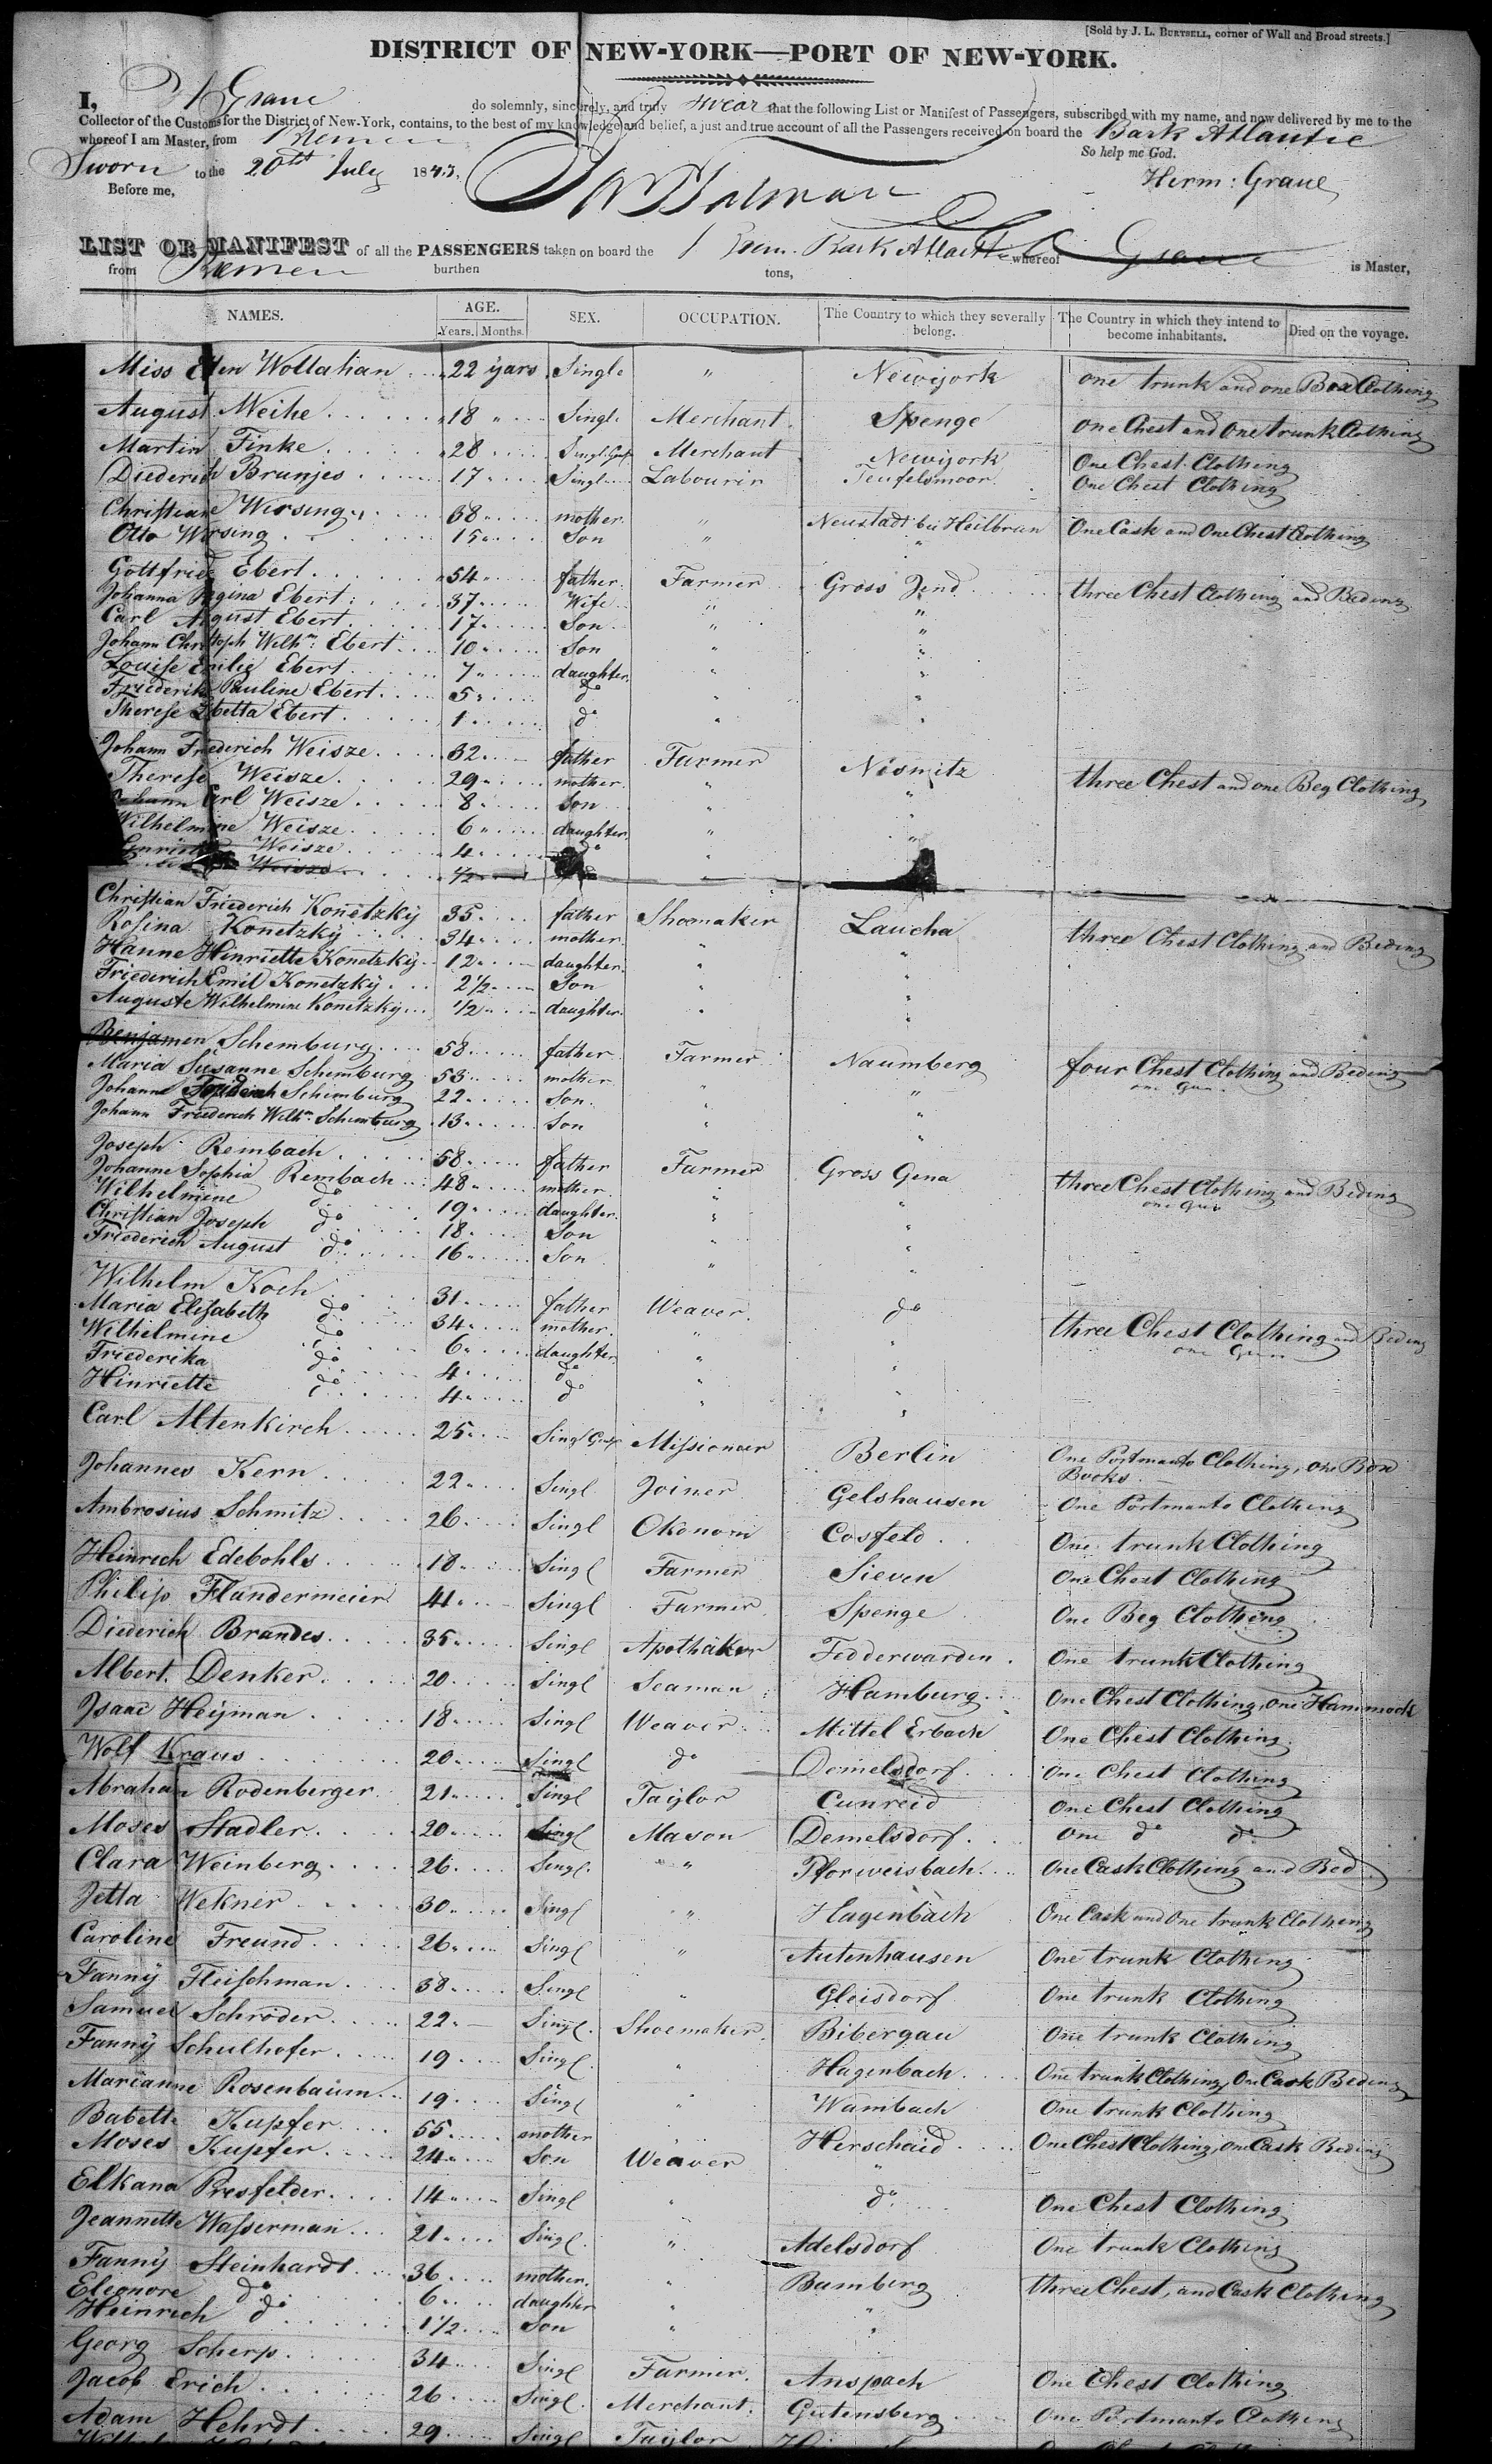 [Sold by J. L. BURTSELL, corner of Wall and Broad streets.]
DISTRICT OF NEW-YORK—PORT OF NEW-YORK.
I, H Graue do solemnly, sincerely, and truly swear that the following List or Manifest of Passengers, subscribed with my name, and now delivered by me to the
Collector of the Customs for the District of New-York, contains, to the best of my knowledge and belief, a just and true account of all the Passengers received on board the Bark Atlantic
whereof I am Master, from Bremen
So help me God.
Sworn to the 20th July 1845,
Herm: Graue
Before me,
LIST OR MANIFEST of all the PASSENGERS taken on board the Brem. Bark Atlantic whereof Graue is Master,
from Bremen burthen tons,
NAMES. AGE. Years. Months. SEX. OCCUPATION. The Country to which they severally belong. The Country in which they intend to become inhabitants. Died on the voyage.
Miss Wollahan 22 years Single " Newyork one trunk and one Box Clothing
August Meihe 18 " Singl. Merchant Spenge One Chest and One trunk Clothing
Martin Finke 28 Merchant Newyork One Chest Clothing
Diederich Brunjes 17 Singl Labourir Teufelsmoor One Chest Clothing
Christiane Wirsing 38 mother " Neustadt bei Heilbrun One Cask and One Chest Clothing
Otto Wirsing 15 Son " "
Gottfried Ebert 54 father Farmer Gross Jena three Chest Clothing and Beding
Johanna Regina Ebert 37 Wife " "
Carl August Ebert 17 Son " "
Johann Christoph Wilhm: Ebert 10 Son " "
Louise Emilie Ebert 7 daughter " "
Friederike Pauline Ebert 5 do " "
Therese Ebert 1 do " "
Johann Friederich Weisze 32 father Farmer Nismitz three Chest and one Beg Clothing
Therese Weisze 29 mother " "
Johann Carl Weisze 8 Son " "
Wilhelmine Weisze 6 daughter " "
Henriette Weisze 4 do "
Weisze 1/2
Christian Friederich Konetzky 35 father Shoemaker Laucha three Chest Clothing and Beding
Rosina Konetzky 34 mother " "
Hanne Hinriette Konetzky 12 daughter " "
Friederich Emil Konetzky 2 1/2 Son " "
Auguste Wilhelmine Konetzky 1/2 daughter " "
Benjamen Schemburg 58 father Farmer Naumberg four Chest Clothing and Beding
one Gun
Maria Susanne Schemburg 53 mother " "
Johann Schemburg 22 Son " "
Johann Friederich Wilhm. Schemburg 13 Son " "
Joseph Rembach 58 father Farmer Gross Gena three Chest Clothing and Beding
one Gun
Johanne Sophia Rembach 48 mother " "
Wilhelmine do 19 daughter " "
Christian Joseph do 18 Son " "
Friederich August do 16 Son " "
Wilhelm Koch 31 father Weaver do three Chest Clothing and Beding
one Gun
Maria Elisabeth do 34 mother " "
Wilhelmine do 6 daughter " "
Friederika do 4 do " "
Hinriette do 4 do " "
Carl Altenkirch 25 Missionaer Berlin One Portmanto Clothing, One Box
Books
Johannes Kern 22 Singl Joiner Gelshausen One Portmanto Clothing
Ambrosius Schmitz 26 Singl Okonom Cosfeld One trunk Clothing
Heinrich Edebohls 18 Singl Farmer Sieven One Chest Clothing
Philip Flandermeier 41 Singl Farmer Spenge One Beg Clothing
Diederich Brandes 35 Singl Apothäker Fedderwarden One trunk Clothing
Albert Denker 20 Singl Seaman Hamburg One Chest Clothing, One Hammock
Isaac Heyman 18 Singl Weaver Mittel Erbach One Chest Clothing
Wolf Kraus 20 Singl do Demelsdorf One Chest Clothing
Abraham Rodenberger 21 Singl Taylor Cunreid One Chest Clothing
Moses Stadler 20 Singl Mason Demelsdorf One do do
Clara Weinberg 26 Singl " Pforweisbach One Cask Clothing and Bed
Jetta Wekner 30 Singl " Hagenbach One Cask and One trunk Clothing
Caroline Freund 26 Singl " Autenhausen One trunk Clothing
Fanny Fleischman 38 Singl " Gleisdorf One trunk Clothing
Samuel Schröder 22 Singl Shoemaker Bibergau One trunk Clothing
Fanny Schulhofer 19 Singl " Hagenbach One trunk Clothing, One Cask Beding
Marianne Rosenbaum 19 Singl " Wambach One trunk Clothing
Babette Kupfer 55 mother Herschaid One Chest Clothing, One Cask Beding
Moses Kupfer 24 Son Weaver "
Elkana Presfelder 14 Singl " do One Chest Clothing
Jeannette Wasserman 21 Singl " Adelsdorf One trunk Clothing
Fanny Steinhardt 36 mother " Bamberg three Chest, and Cask Clothing
Eleonore do 6 daughter " "
Heinrich do 1 1/2 Son " "
Georg Scherp 34 Singl Farmer Anspach One Chest Clothing
Jacob Erich 26 Singl Merchant Gutensberg One Portmanto Clothing
Adam Hehrdt 29 Singl Taylor